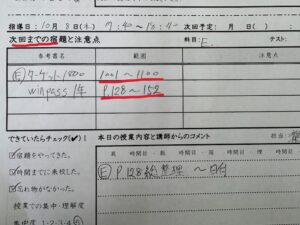 指導日:10月8日(木) 7:40~
次回予定: 月 日(
次回までの宿題と注意点
科目:E
テスト:
参考書名 範囲 注意点
Ⓔターゲット1800 1001~1100
winpass 1年 P.128~152
できていたらチェック(✓)!
本日の授業内容と講師からのコメント
担当:
☑宿題をやってきた。
☑時間までに来校した。
☑忘れ物がなかった。
授業での集中・理解度
集中度 1・2・3・4
Ⓔ P.128 総整理 ~日付